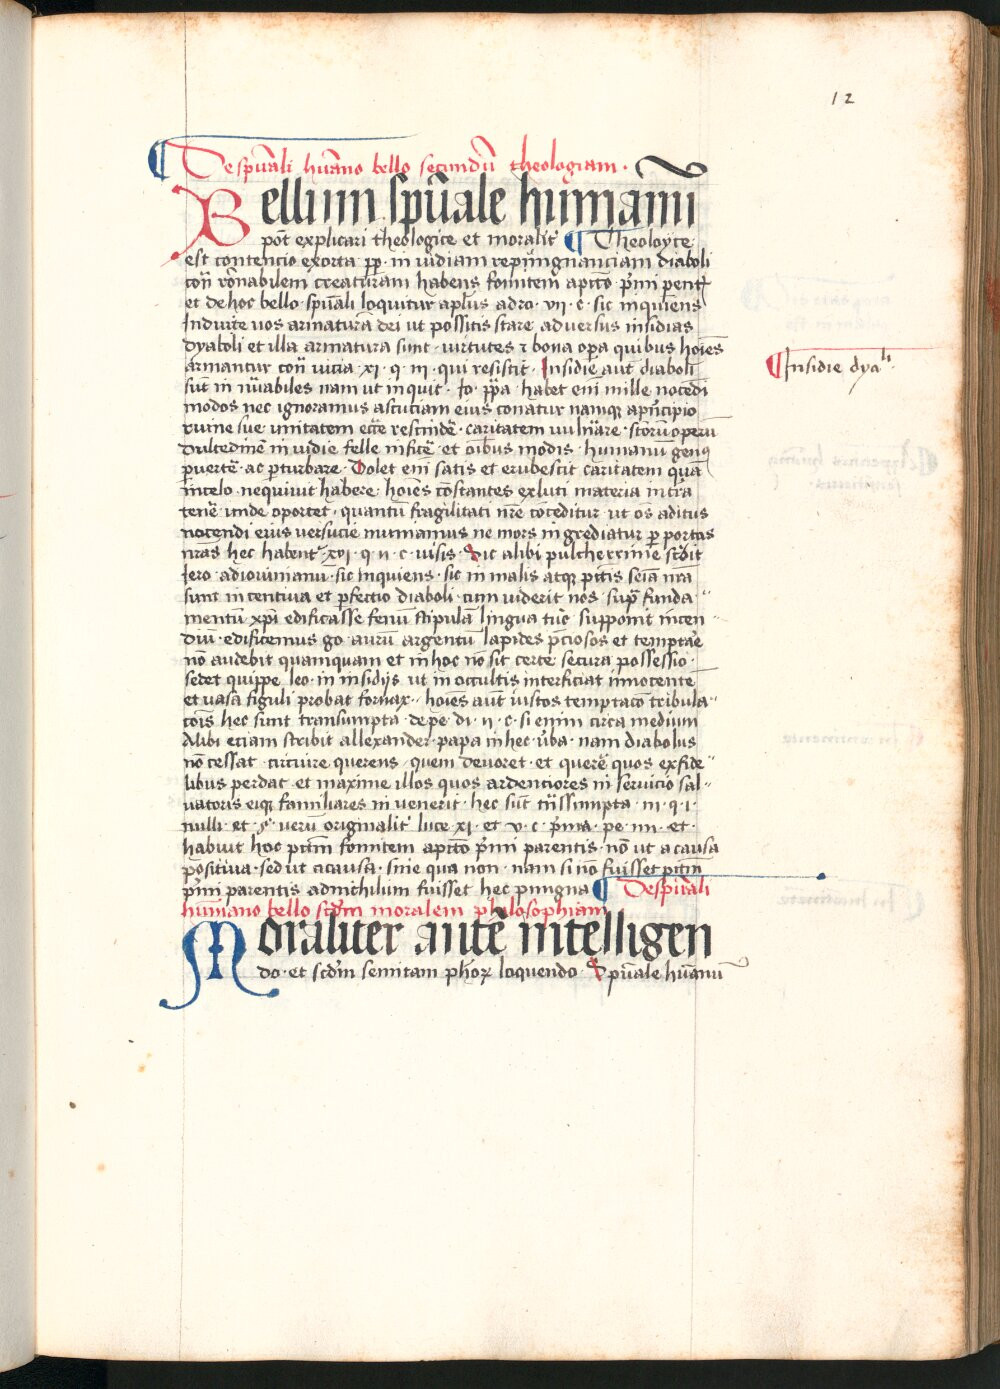 12
¶ De spūali hūano bello secundū theologiam ·
Bellum spūale humanū
pōt explicari theologice et moralit̄ ¶ Theoloyce
est contencio exorta pp̄ · in uidiam repungnanciam diaboli
con̄ rōnabilem creaturam habens fomitem ap̄ccō p̄mi parent
et de hoc bello · spūali loquitur apl̄us ad ro · vii · c · sic inquiens
Induite uos armaturā dei ut possitis stare aduersus insidias
dyaboli et illa armatura sunt · uirtutes ⁊ bona opa quibus hoīes
armantur con̄ uicia · xi · q · iii · qui resistit · Insidie aut̄ diaboli
sūt in nūabiles nam ut inquit · Io · pp̄a · habet enī mille nocēdi
modos nec ignoramus astuciam eius conatur namq̄ a p̄ncipio
ruine sue unitatem ecc̄e rescindē · caritatem uulnāre · sc̄orū operū
dulcedinē in uidie felle inficē · et oībus modis · humanū genus
p̄uertē · ac p̄turbare · Dolet enī satis et erubescit caritatem quā
in celo · nequiuit habere · hoīes cōstantes ex luti materia in t̄ra
tenē unde oportet · quantū fragilitati nr̄e cōceditur ut os aditus
nocendi eius uersucie muniamus ne mors ingrediatur p̄ portas
nras hec habent̄ · xvi · q · ii · c · uisis · Sic alibi pulcherrime sc̄bit
Iero · ad iouinianū · sic inquiens · sic in malis atq̄ pc̄tis seīa nr̄a
sunt incentiua et p̄fectio diaboli · cum uiderit nos · sup̄ funda
mentū xp̄i edificasse fenū stipulā lingua tūc supponit incen
diū · edificemus go · aurū argentū lapides p̄ciosos et temptāe
nō audebit quamquam et in hoc nō sit certe secura possessio ·
sedet quippe leo · in insidijs ut in occultis interficiat innocente
et uasa figuli probat fornax · hoīes aūt iustos temptacō tribula
cōis hec sunt transumpta · de pē · di · ii · c · si enim · circa medium
Alibi eciam scribit allexander · papa in hec · ūba · nam diabolus
nō cessat · circuire querens · quem deuoret · et querē quos ex fide
libus perdat et maxime illos quos ardenciores in seruicio sal
uatoris eiq̄ familiares in uenerit · hec sūt t̄nssumpta · iii · q · i ·
nulli · et · § · uerū originalit̄ luce · xi · et · v · c · p̄ma · pe · iiii · et ·
habuit hoc pc̄tm̄ fomitem ap̄ccō p̄mi parentis · nō ut a causa
pōsitiua · sed ut a causa · sine qua non · nam si nō fuisset pc̄tm̄
p̄mi parentis adnichilum fuisset hec pungna ¶ De spūali
hūmano bello scd̄m moralem philosophiam
Moraliter autē intelligen
do · et scd̄m semitam ph̄orꝝ loquendo · Spūale hūanū
¶ Insidie dya^li